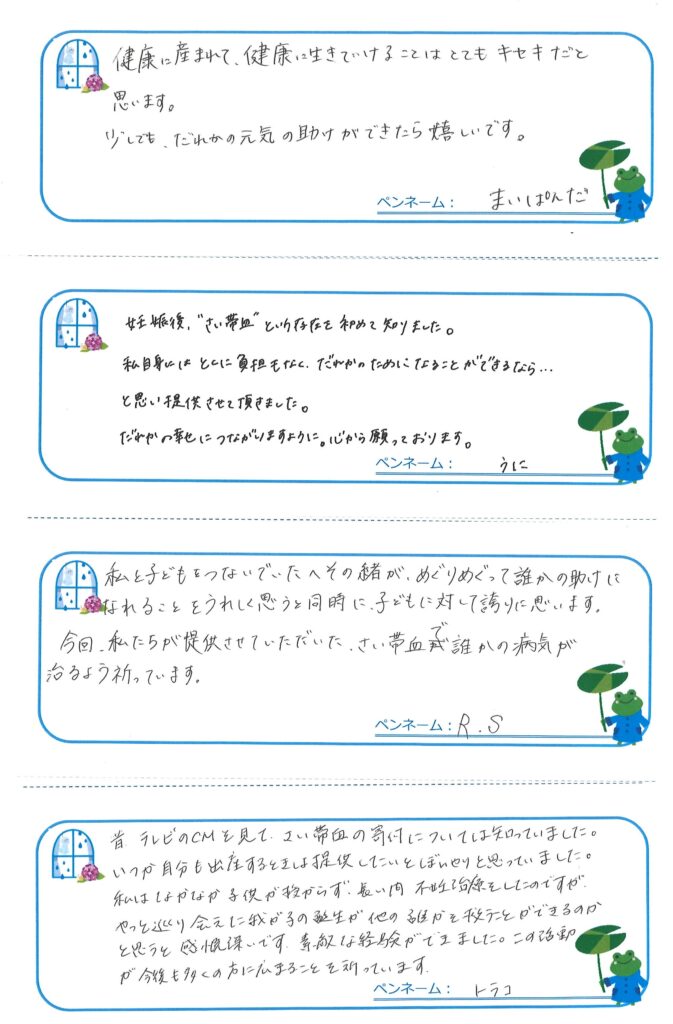 健康に産まれて、健康に生きていけることはとてもキセキだと
思います。
少しでも、だれかの元気の助けができたら嬉しいです。
ペンネーム： まいぱんだ
妊娠後、"さい帯血"という存在を初めて知りました。
私自身にはとくに負担もなく、だれかのためになることができるなら…
と思い提供させて頂きました。
だれかの幸せにつながりますように。心から願っております。
ペンネーム： うに
私と子どもをつないでいたへその緒が、めぐりめぐって誰かの助けに
なれることをうれしく思うと同時に、子どもに対して誇りに思います。
今回、私たちが提供させていただいた、さい帯血で誰かの病気が
治るよう祈っています。
ペンネーム： R.S
昔 テレビのCMを見て、さい帯血の寄付については知っていました。
いつか自分も出産するときは提供したいとぼんやりと思っていました。
私はなかなか子供が授からず、長い間 不妊治療をしたのですが、
やっと巡り会えた我が子の誕生が他の誰かを救うことができるのか
と思うと感慨深いです。素敵な経験ができました。この活動
が今後も多くの方に広まることを祈っています。
ペンネーム： トラコ